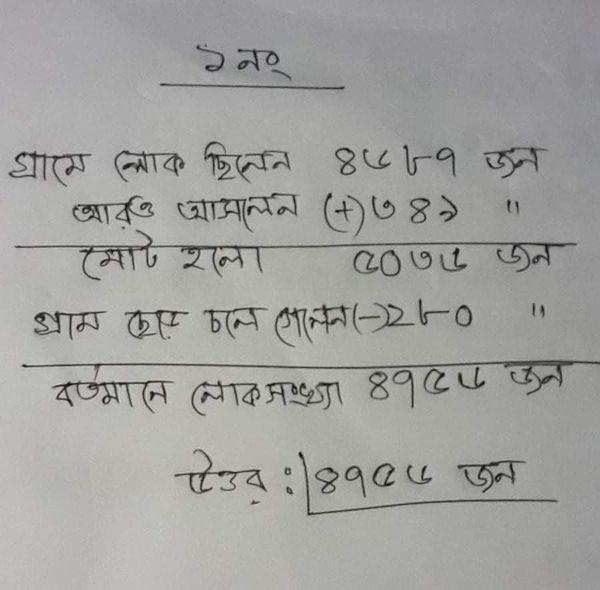 ১ নং
গ্রামে লোক ছিলেন ৪৬৮৭ জন
আরও আসলেন (+) ৩৪৯ "
মোট হলো ৫০৩৬ জন
গ্রাম ছেড়ে চলে গেলেন (-) ২৮০ "
বর্তমানে লোকসংখ্যা ৪৭৫৬ জন
উত্তর : ৪৭৫৬ জন